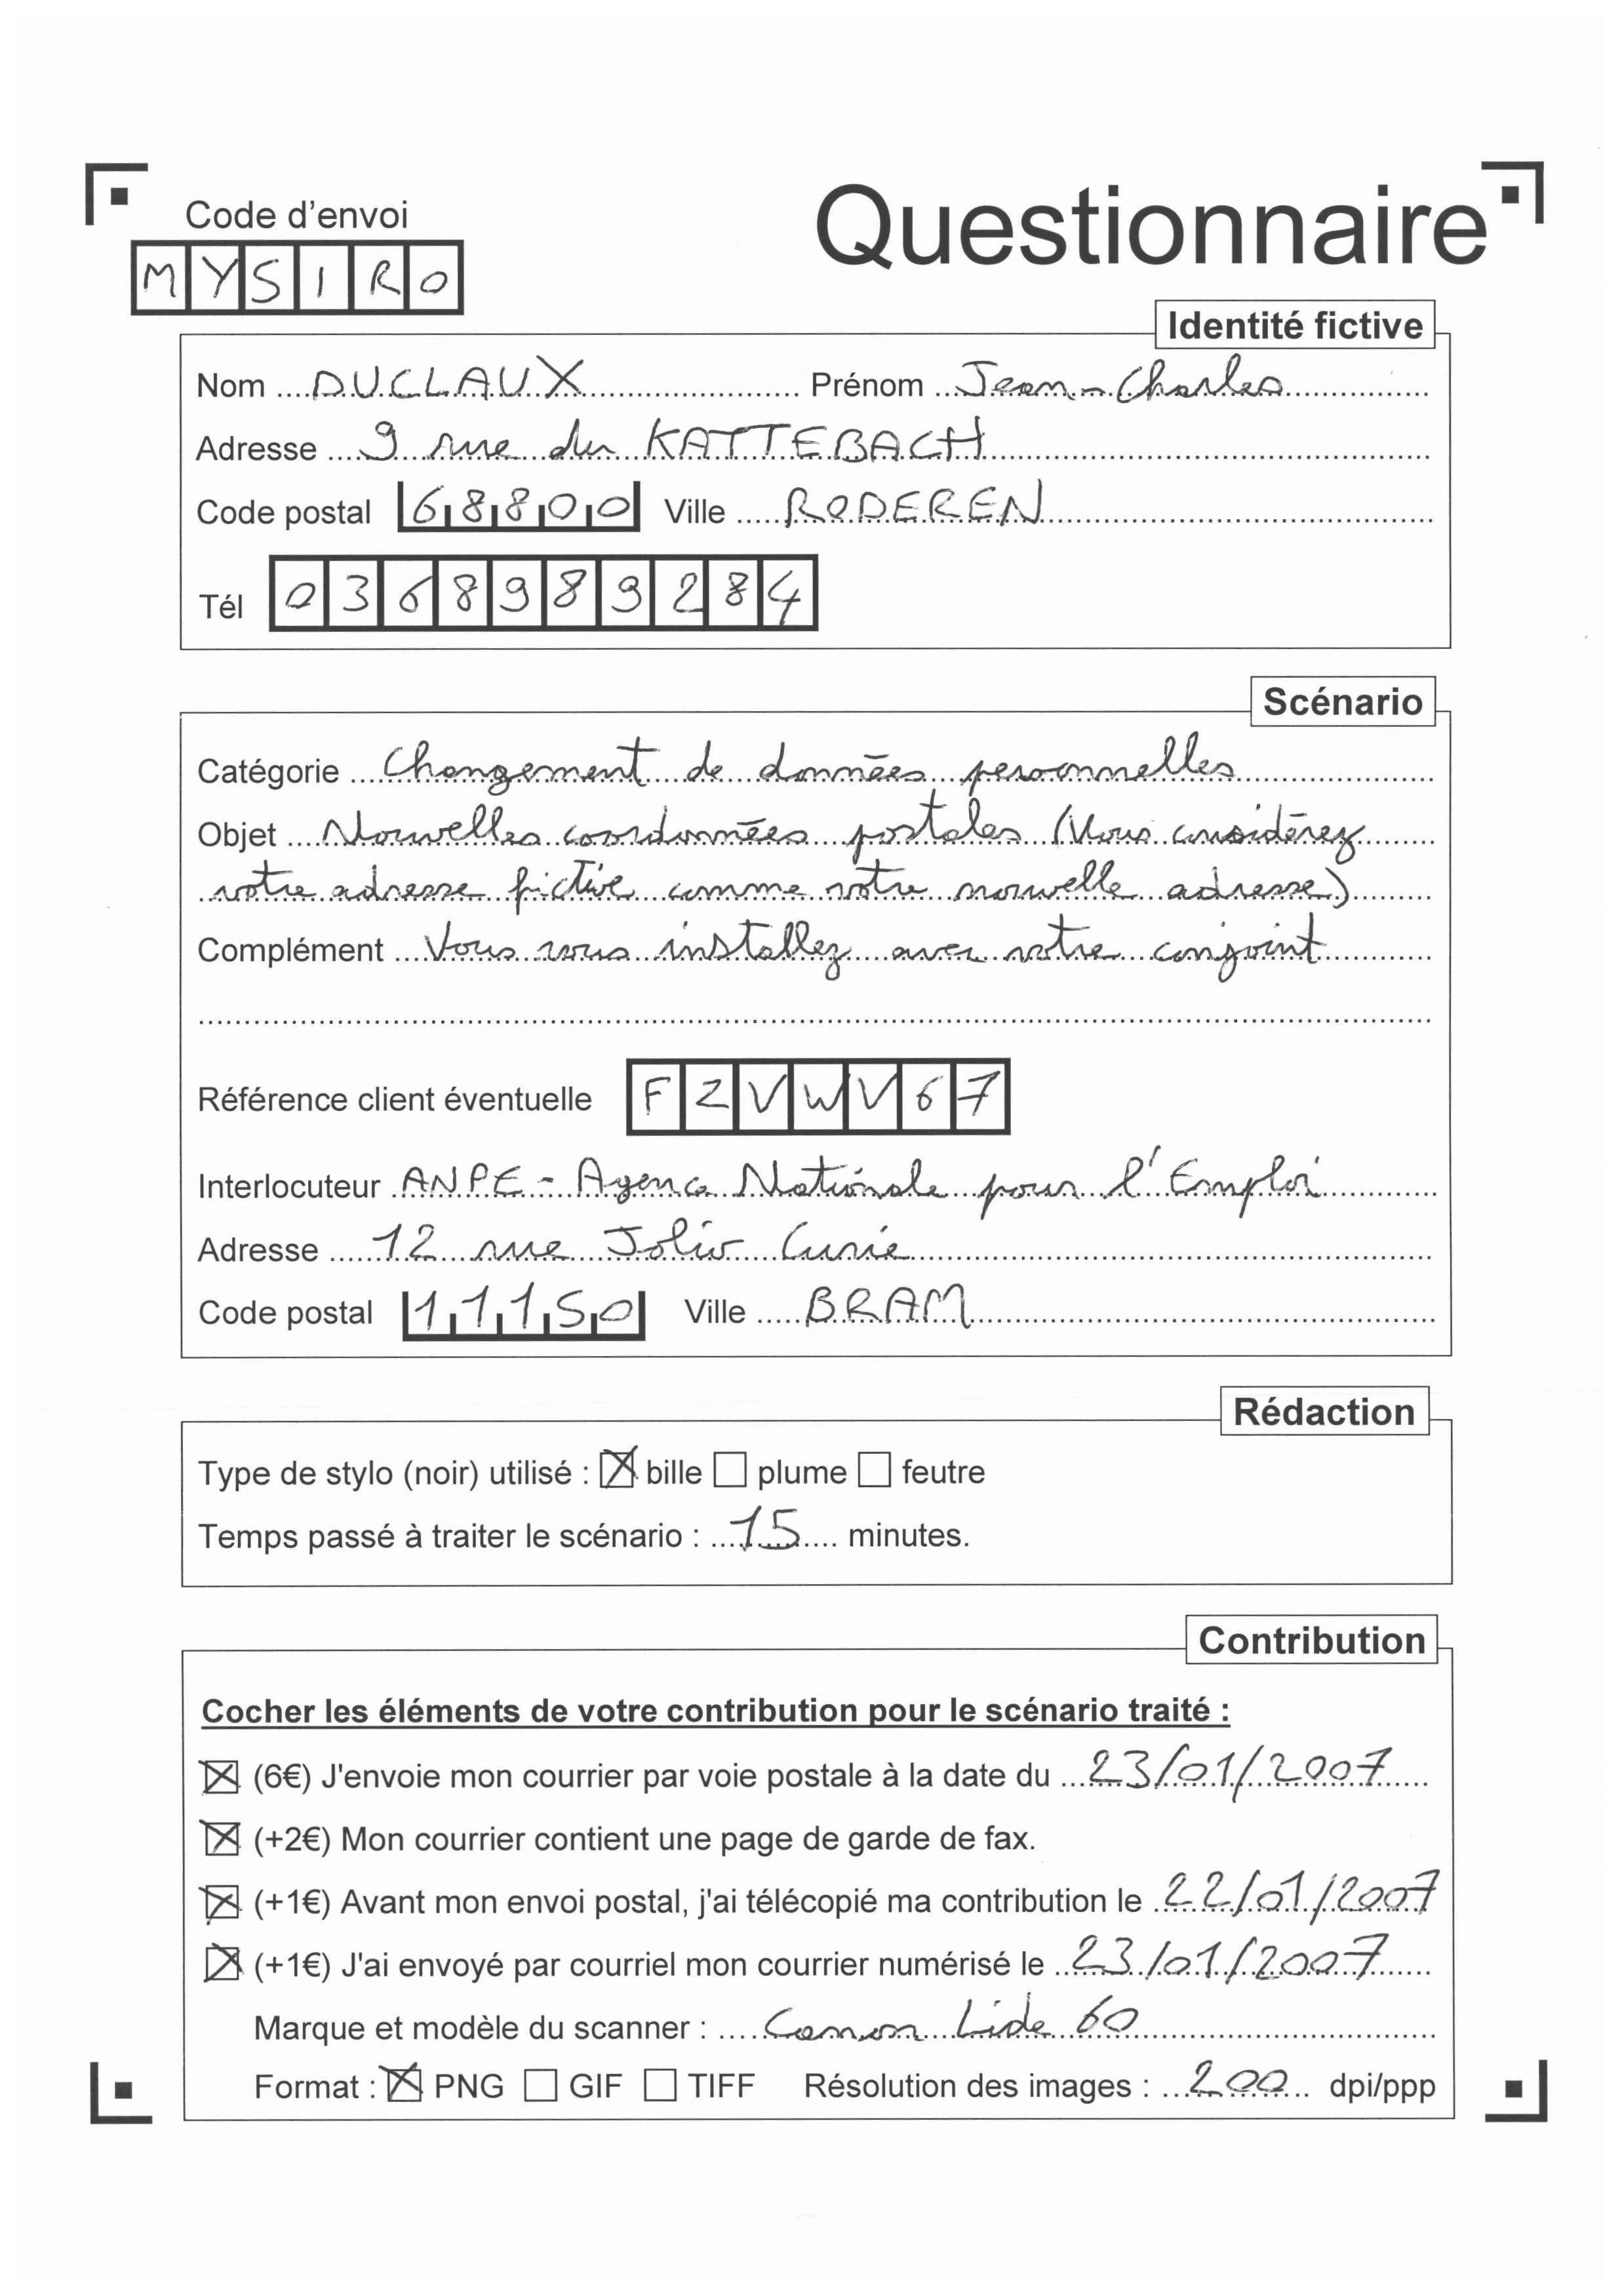 Code d'envoi
Questionnaire
MYSIRO
Identité fictive
Nom DUCLAUX Prénom Jean-Charles
Adresse 9 rue du KATTEBACH
Code postal 68800 Ville RODEREN
Tél 0368989284
Scénario
Catégorie Changement de données personnelles
Objet Nouvelles coordonnées postales (Vous considérez
votre adresse fictive comme votre nouvelle adresse)
Complément Vous vous installez avec votre conjoint
Référence client éventuelle FZVWV67
Interlocuteur ANPE - Agence Nationale pour l'Emploi
Adresse 12 rue Joliot Curie
Code postal 11150 Ville BRAM
Rédaction
Type de stylo (noir) utilisé : bille plume feutre
Temps passé à traiter le scénario : 15 minutes.
Contribution
Cocher les éléments de votre contribution pour le scénario traité :
(6€) J'envoie mon courrier par voie postale à la date du 23/01/2007
(+2€) Mon courrier contient une page de garde de fax.
(+1€) Avant mon envoi postal, j'ai télécopié ma contribution le 22/01/2007
(+1€) J'ai envoyé par courriel mon courrier numérisé le 23/01/2007
Marque et modèle du scanner : Canon Lide 60
Format : PNG GIF TIFF Résolution des images : 200 dpi/ppp